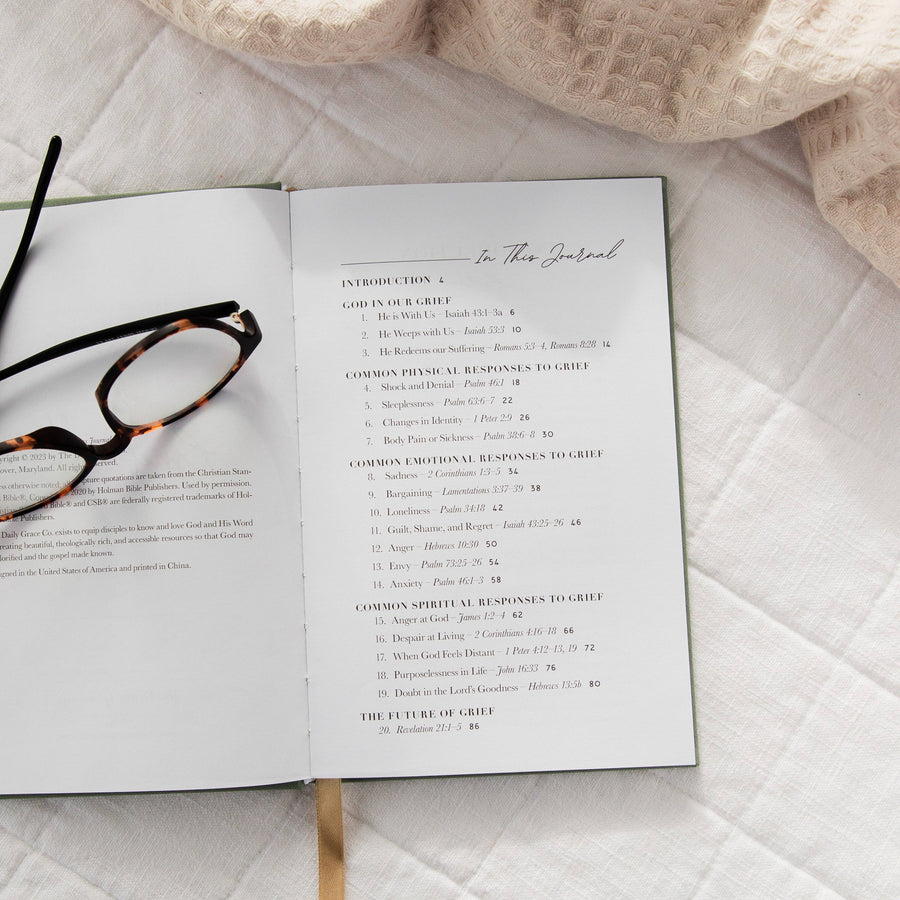 Journal
yright © 2023 by The
over, Maryland. All rights
served.
ess otherwise noted, all
pture quotations are taken from the Christian Stan-
Bible®, Copy
2020 by Holman Bible Publishers. Used by permission.
Bible® and CSB® are federally registered trademarks of Hol-
Publishers.
Daily Grace Co. exists to equip disciples to know and love God and His Word
reating beautiful, theologically rich, and accessible resources so that God may
lorified and the gospel made known.
igned in the United States of America and printed in China.
In This Journal
INTRODUCTION 4
GOD IN OUR GRIEF
1. He is With Us – Isaiah 43:1–3a 6
2. He Weeps with Us – Isaiah 53:3 10
3. He Redeems our Suffering – Romans 5:3–4, Romans 8:28 14
COMMON PHYSICAL RESPONSES TO GRIEF
4. Shock and Denial – Psalm 46:1 18
5. Sleeplessness – Psalm 63:6–7 22
6. Changes in Identity – 1 Peter 2:9 26
7. Body Pain or Sickness – Psalm 38:6–8 30
COMMON EMOTIONAL RESPONSES TO GRIEF
8. Sadness – 2 Corinthians 1:3–5 34
9. Bargaining – Lamentations 3:37–39 38
10. Loneliness – Psalm 34:18 42
11. Guilt, Shame, and Regret – Isaiah 43:25–26 46
12. Anger – Hebrews 10:30 50
13. Envy – Psalm 73:25–26 54
14. Anxiety – Psalm 46:1–3 58
COMMON SPIRITUAL RESPONSES TO GRIEF
15. Anger at God – James 1:2–4 62
16. Despair at Living – 2 Corinthians 4:16–18 66
17. When God Feels Distant – 1 Peter 4:12–13, 19 72
18. Purposelessness in Life – John 16:33 76
19. Doubt in the Lord's Goodness – Hebrews 13:5b 80
THE FUTURE OF GRIEF
20. Revelation 21:1–5 86